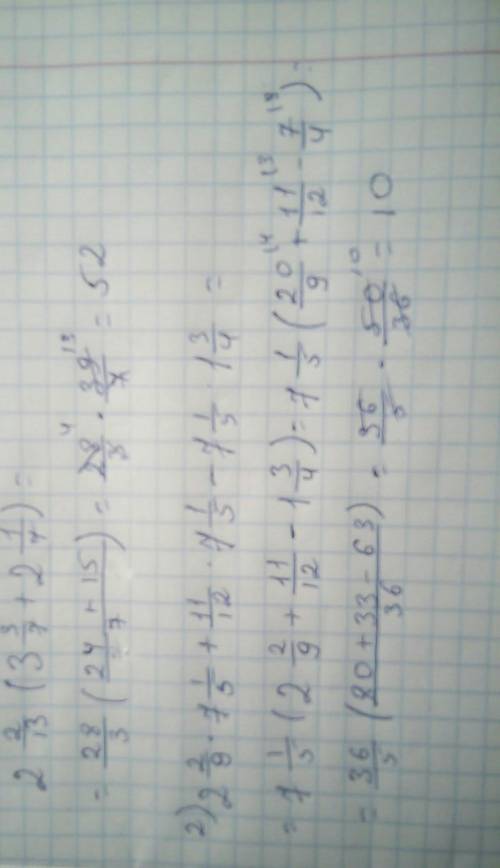 2 2/13 (3 3/7 + 2 1/7) =
= 28/3 ((24 + 15)/7) = 28/3 ⁴ · 39/7 ¹³ = 52
2) 2 2/9 · 7 1/5 + 11/12 · 7 1/5 - 7 1/5 · 1 3/4 =
= 7 1/5 (2 2/9 + 11/12 - 1 3/4) = 7 1/5 (20/9 \4 + 11/12 \3 - 7/4 \9) =
= 36/5 ((80 + 33 - 63)/36) = 36/5 · 50/36 ¹⁰ = 10